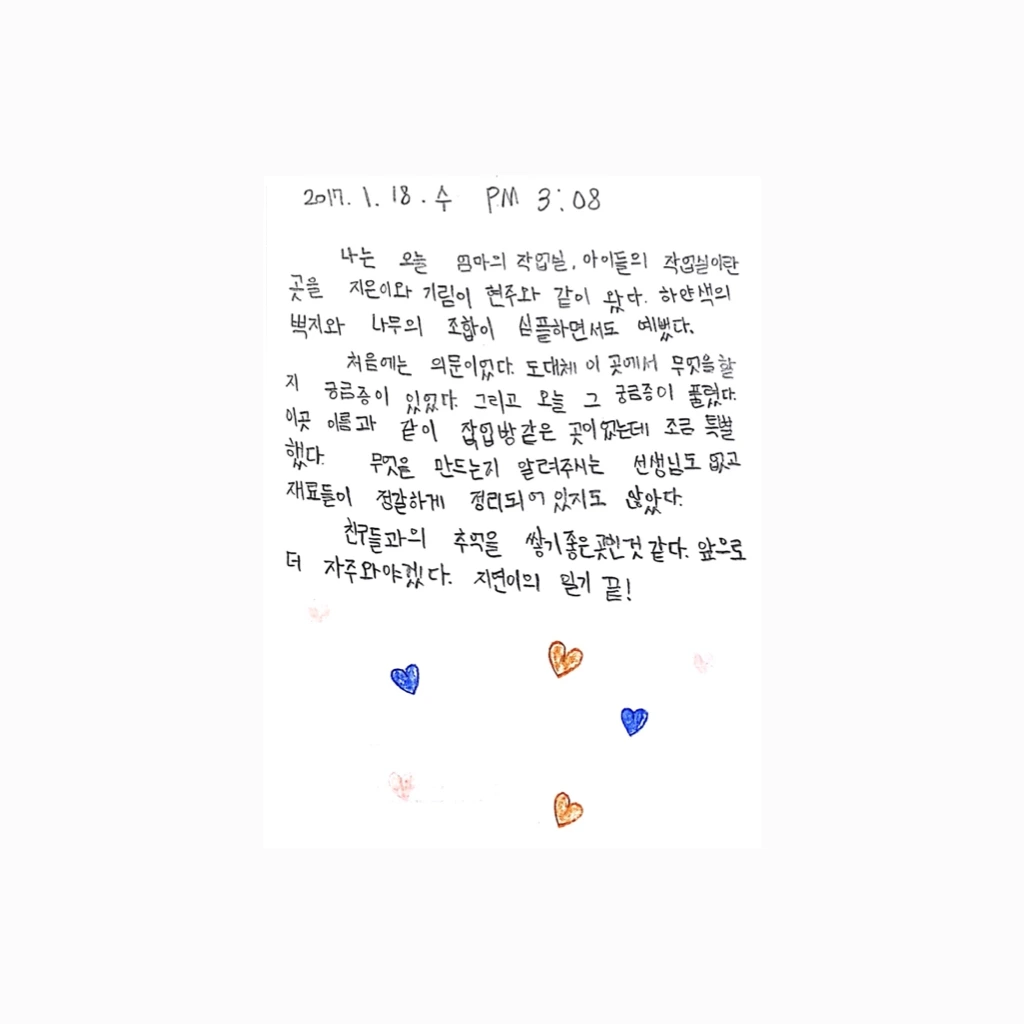 2017. 1. 18. 수 PM 3:08
나는 오늘 엄마의 작업실, 아이들의 작업실이란
곳을 지은이와 기림이 현주와 같이 왔다. 하얀색의
벽지와 나무의 조합이 심플하면서도 예뻤다.
처음에는 의문이었다. 도대체 이 곳에서 무엇을 할
지 궁금증이 있었다. 그리고 오늘 그 궁금증이 풀렸다.
이곳 이름과 같이 작업방같은 곳이었는데 조금 특별
했다. 무엇을 만드는지 알려주시는 선생님도 없고
재료들이 정갈하게 정리되어 있지도 않았다.
친구들과의 추억을 쌓기좋은곳인것 같다. 앞으로
더 자주와야겠다. 지연이의 일기 끝!